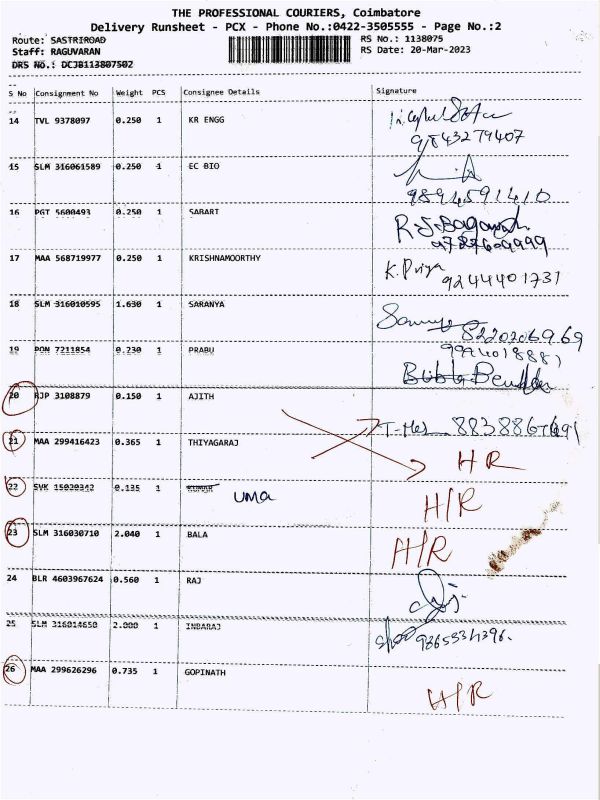 THE PROFESSIONAL COURIERS, Coimbatore
Delivery Runsheet - PCX - Phone No.:0422-3505555 - Page No.:2
Route: SASTRIROAD RS No.: 1138075
Staff: RAGUVARAN RS Date: 20-Mar-2023
DRS No.: DCJB113807502
S No Consignment No Weight PCS Consignee Details Signature
14 TVL 9378097 0.250 1 KR ENGG
9843279407
15 SLM 316061589 0.250 1 EC BIO
9894591410
16 PGT 5600493 0.250 1 SABARI
17 MAA 568719977 0.250 1 KRISHNAMOORTHY K. Priya
9244401731
18 SLM 316010595 1.630 1 SARANYA
8220206969
19 PON 7211854 0.230 1 PRABU
20 RJP 3108879 0.150 1 AJITH
21 MAA 299416423 0.365 1 THIYAGARAJ HR
22 SVK 15020342 0.135 1 KUMAR UMA H/R
23 SLM 316030710 2.040 1 BALA H/R
24 BLR 4603967624 0.560 1 RAJ
25 SLM 316014650 2.000 1 INBARAJ
26 MAA 299626296 0.735 1 GOPINATH H/R